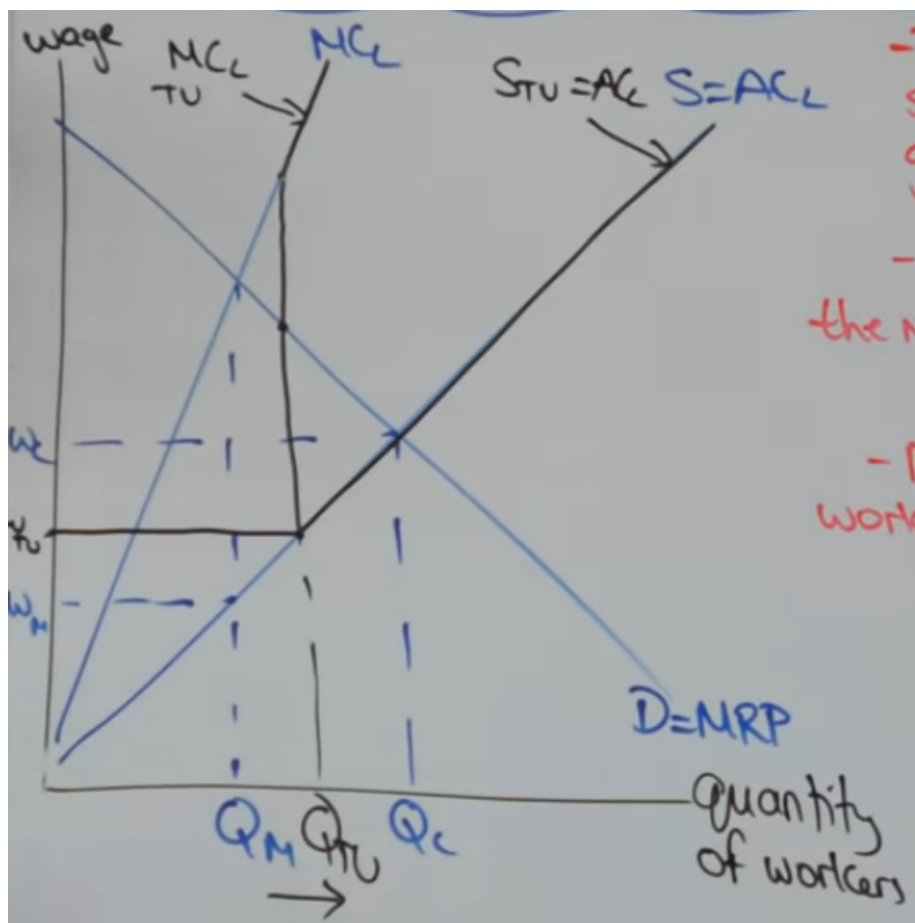 wage
MCL
TU
MCL
STU = ACL
S=ACL
the
WC
TU
WM
work
D=MRP
QM
QTU
QC
quantity
of workers